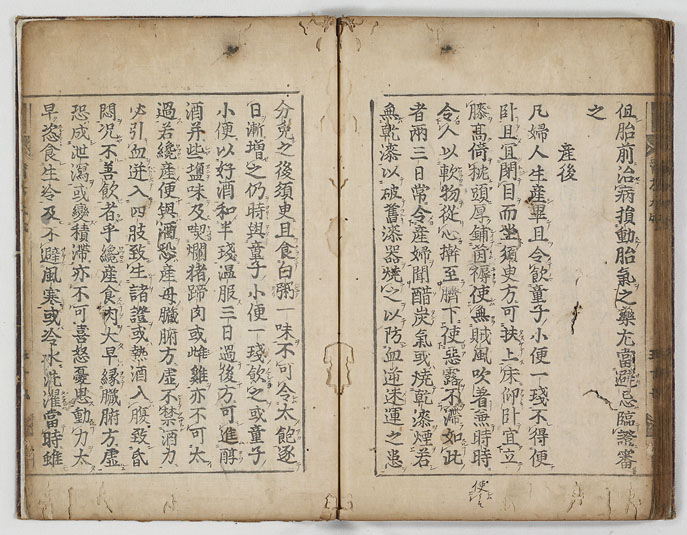 但胎前治病損動胎氣之藥尤當避忌臨證審
之
産後
凡婦人生産畢且令飲童子小便一琖不得便
卧且宜閉目而坐須臾方可扶上床仰卧宜立
膝高倚枕頭厚鋪茵褥使無賊風吹着兼時時
令人以軟物從心擀至臍下使惡露不滯如此
者兩三日常令産婦聞醋炭氣或燒乾漆煙若
無乾漆以破舊漆器燒之以防血逆迷運之患
分娩之後須臾且食白粥一味不可令太飽逐
日漸増之仍時與童子小便一琖飲之或童子
小便以好酒和半琖温服三日過後方可進醇
酒并些塩味及喫爛猪蹄肉或雌雞亦不可太
過若纔産便與酒恐産母臟腑方虚不禁酒力
必引血迸入四肢致生諸證或熱酒入腹致昏
悶况不善飲者乎纔産食肉大早縁臟腑方虚
恐成泄瀉或變積滯亦不可喜怒憂思動力太
早恣食生冷及不避風寒或冷水洗濯當時雖